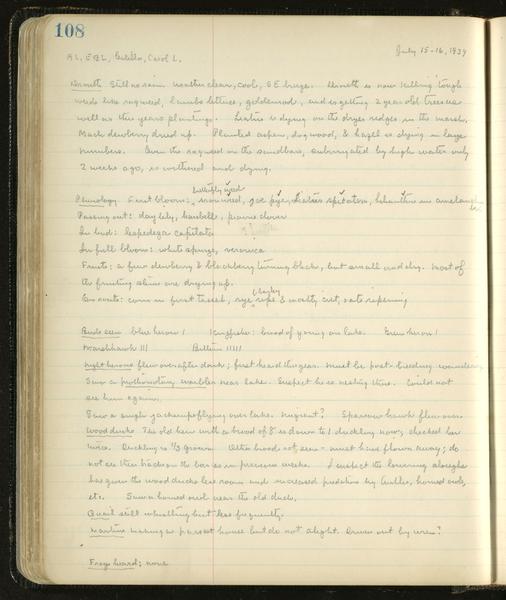 108
AL, EBL, Estella, Carol L.
July 15-16, 1939
Drouth Still no rain. Weather clear, cool, SE breeze. Drouth is now killing tough
weeds like ragweed, lambs lettuce, goldenrods, and is getting 2 year old trees as
well as this years plantings. Liatris is dying on the dryer ridges in the marsh.
Much dewberry dried up. Planted aspen, dogwood, & hazel is dying in large
numbers. Even the ragweed on the sandbars, subirrigated by high water only
2 weeks ago, is withered and dying.
butterfly weed
Phenology First bloom: ironweed, joe pye, Liatris spicata, Helianthus
Passing out: day lily, harebell, prairie clover
In bud: lespedeza capitata
In full bloom: white spurge, veronica
Fruits: a few dewberry & blackberry turning black, but small and dry. Most of
the fruiting stems are drying up.
barley
Ag events: corn in first tassel, rye ripe & mostly cut, oats ripening
Birds seen blue heron 1 Kingfisher: brood of young on lake. Green heron 1
Marshhawk III Bittern IIIII
Night herons flew over after dark; first heard this year. Must be post-breeding wanderers.
Saw a prothonotary warbler near lake. Suspect he is nesting there. Could not
see him again.
Saw a single jacksnipe flying over lake. Migrant? Sparrow hawk flew over.
Wood ducks The old hen with a brood of 8 is down to 1 duckling now; checked her
twice. Duckling is 1/3 grown. Other broods not seen - must have flown away; do
not see their tracks on the bar as in previous weeks. I suspect the lowering sloughs
has given the wood ducks less room and increased predation by turtles, horned owls,
etc. Saw a horned owl near the old duck.
Quail still whistling but less frequently.
Martins making a pass at house but do not alight. Driven out by wren?
Frogs heard; none